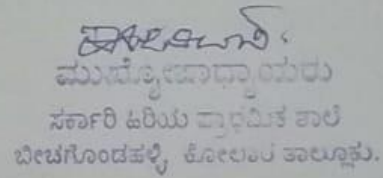 ಮುಖ್ಯೋಪಾಧ್ಯಾಯರು
ಸರ್ಕಾರಿ ಹಿರಿಯ ಪ್ರಾಥಮಿಕ ಶಾಲೆ
ಬೀಚಗೊಂಡಹಳ್ಳಿ, ಕೋಲಾರ ತಾಲ್ಲೂಕು.